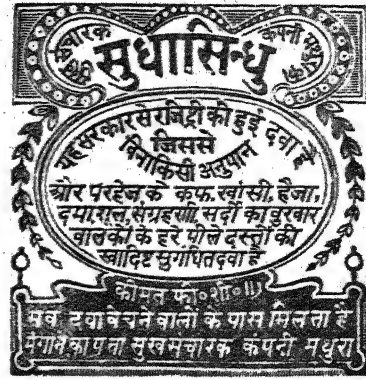 सुखसंचारक कंपनी मथुरा
सुधासिन्धु
यह सरकार से रजिष्ट्री की हुई दवा है
जिससे
विना किसी अनुपान
और परहेज के कफ, खांसी, हैजा,
दमा, शूल, संग्रहणी, सर्दी का बुखार
बालकों के हरे पीले दस्तों की
स्वादिष्ट सुगंधित दवा है
कीमत फी॰शी॰॥)
सब दवा बेचने वालों के पास मिलता है
मंगाने का पता सुखसंचारक कंपनी मथुरा